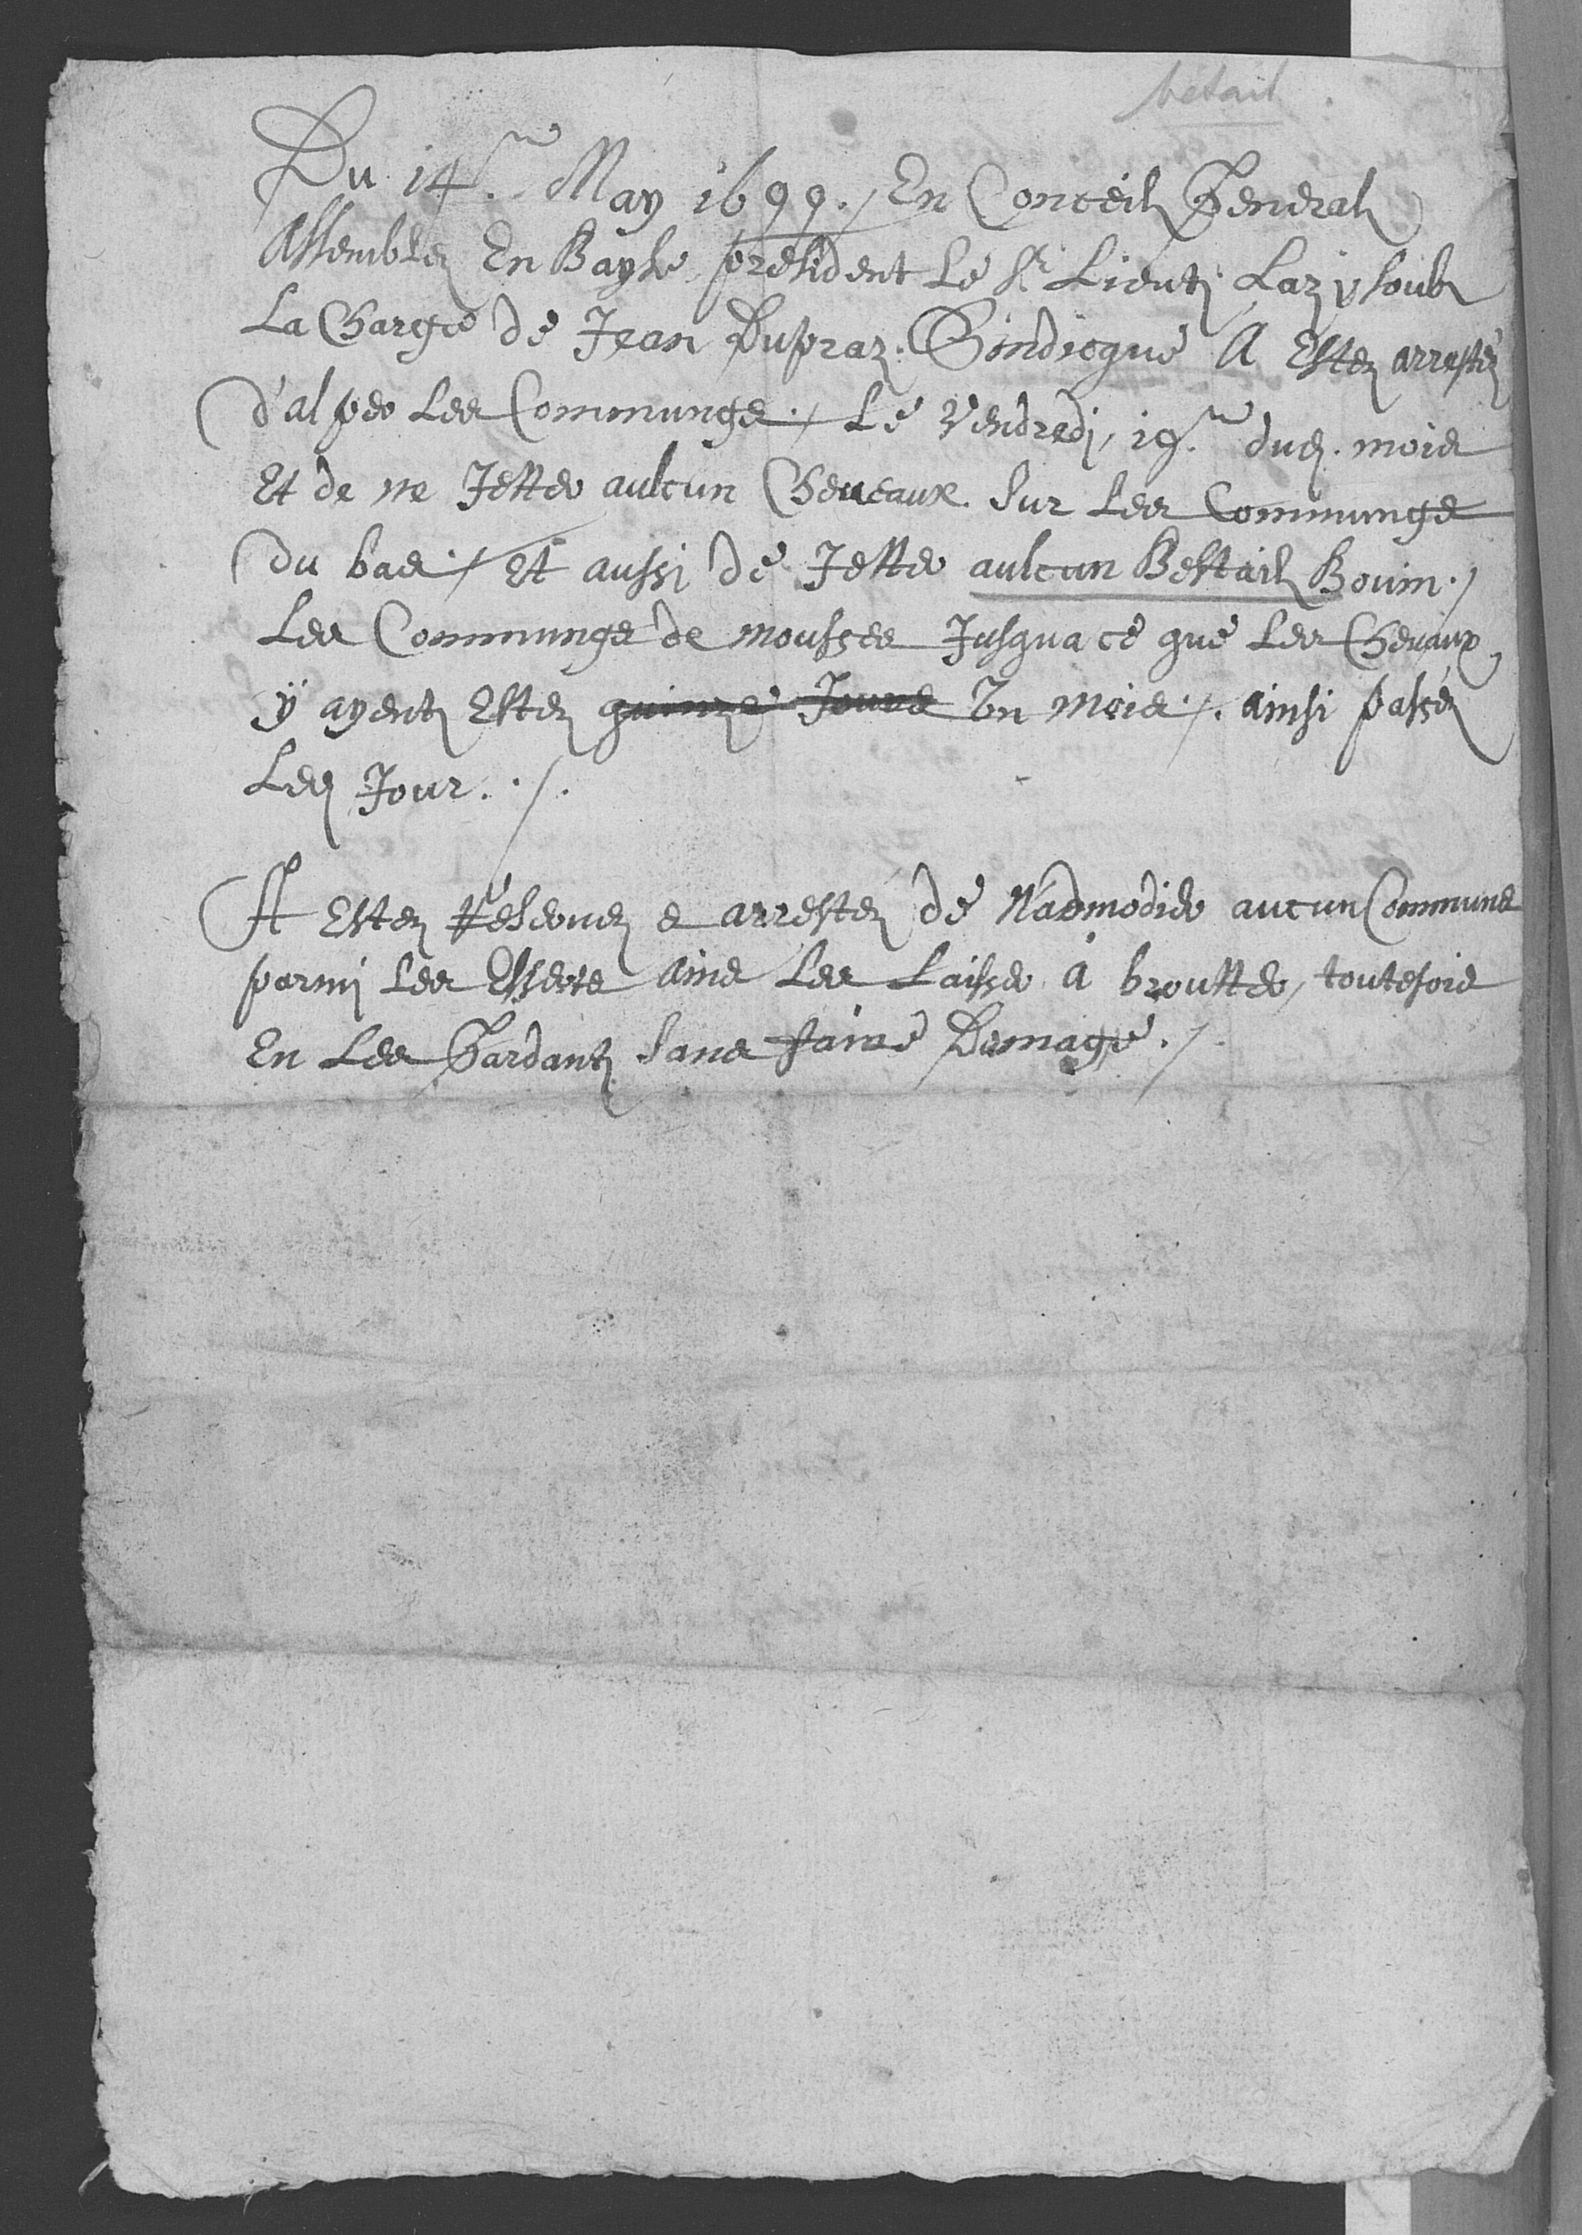 bétail
Du 14.me May 1699. En Conceil General
Assemblez En Bayse president Le Sr Lieut. Lazy soubz
La Charge de Jean Dupraz. Sindicque A Estez arrestéz
d'alper Les Communges. Le Vendredi, 19.me dud. mois
Et de ne Jetter aulcun Cheveaux sur Les Communges
du bas, Et aussi de Jetter aulcun Bestail Bovin.
Les Communges de mousses Jusqua ce que Les Chevaux
ÿ ayent Estez quinze Jours Un mois. ainsi passéz
Led. Jour.
A Estez Réservez e arrestez de N'admodier aucun Communs
parmi Les Esserts ains Les Laisser à broutter, toutefois
En Les Gardant sans faire Domage.